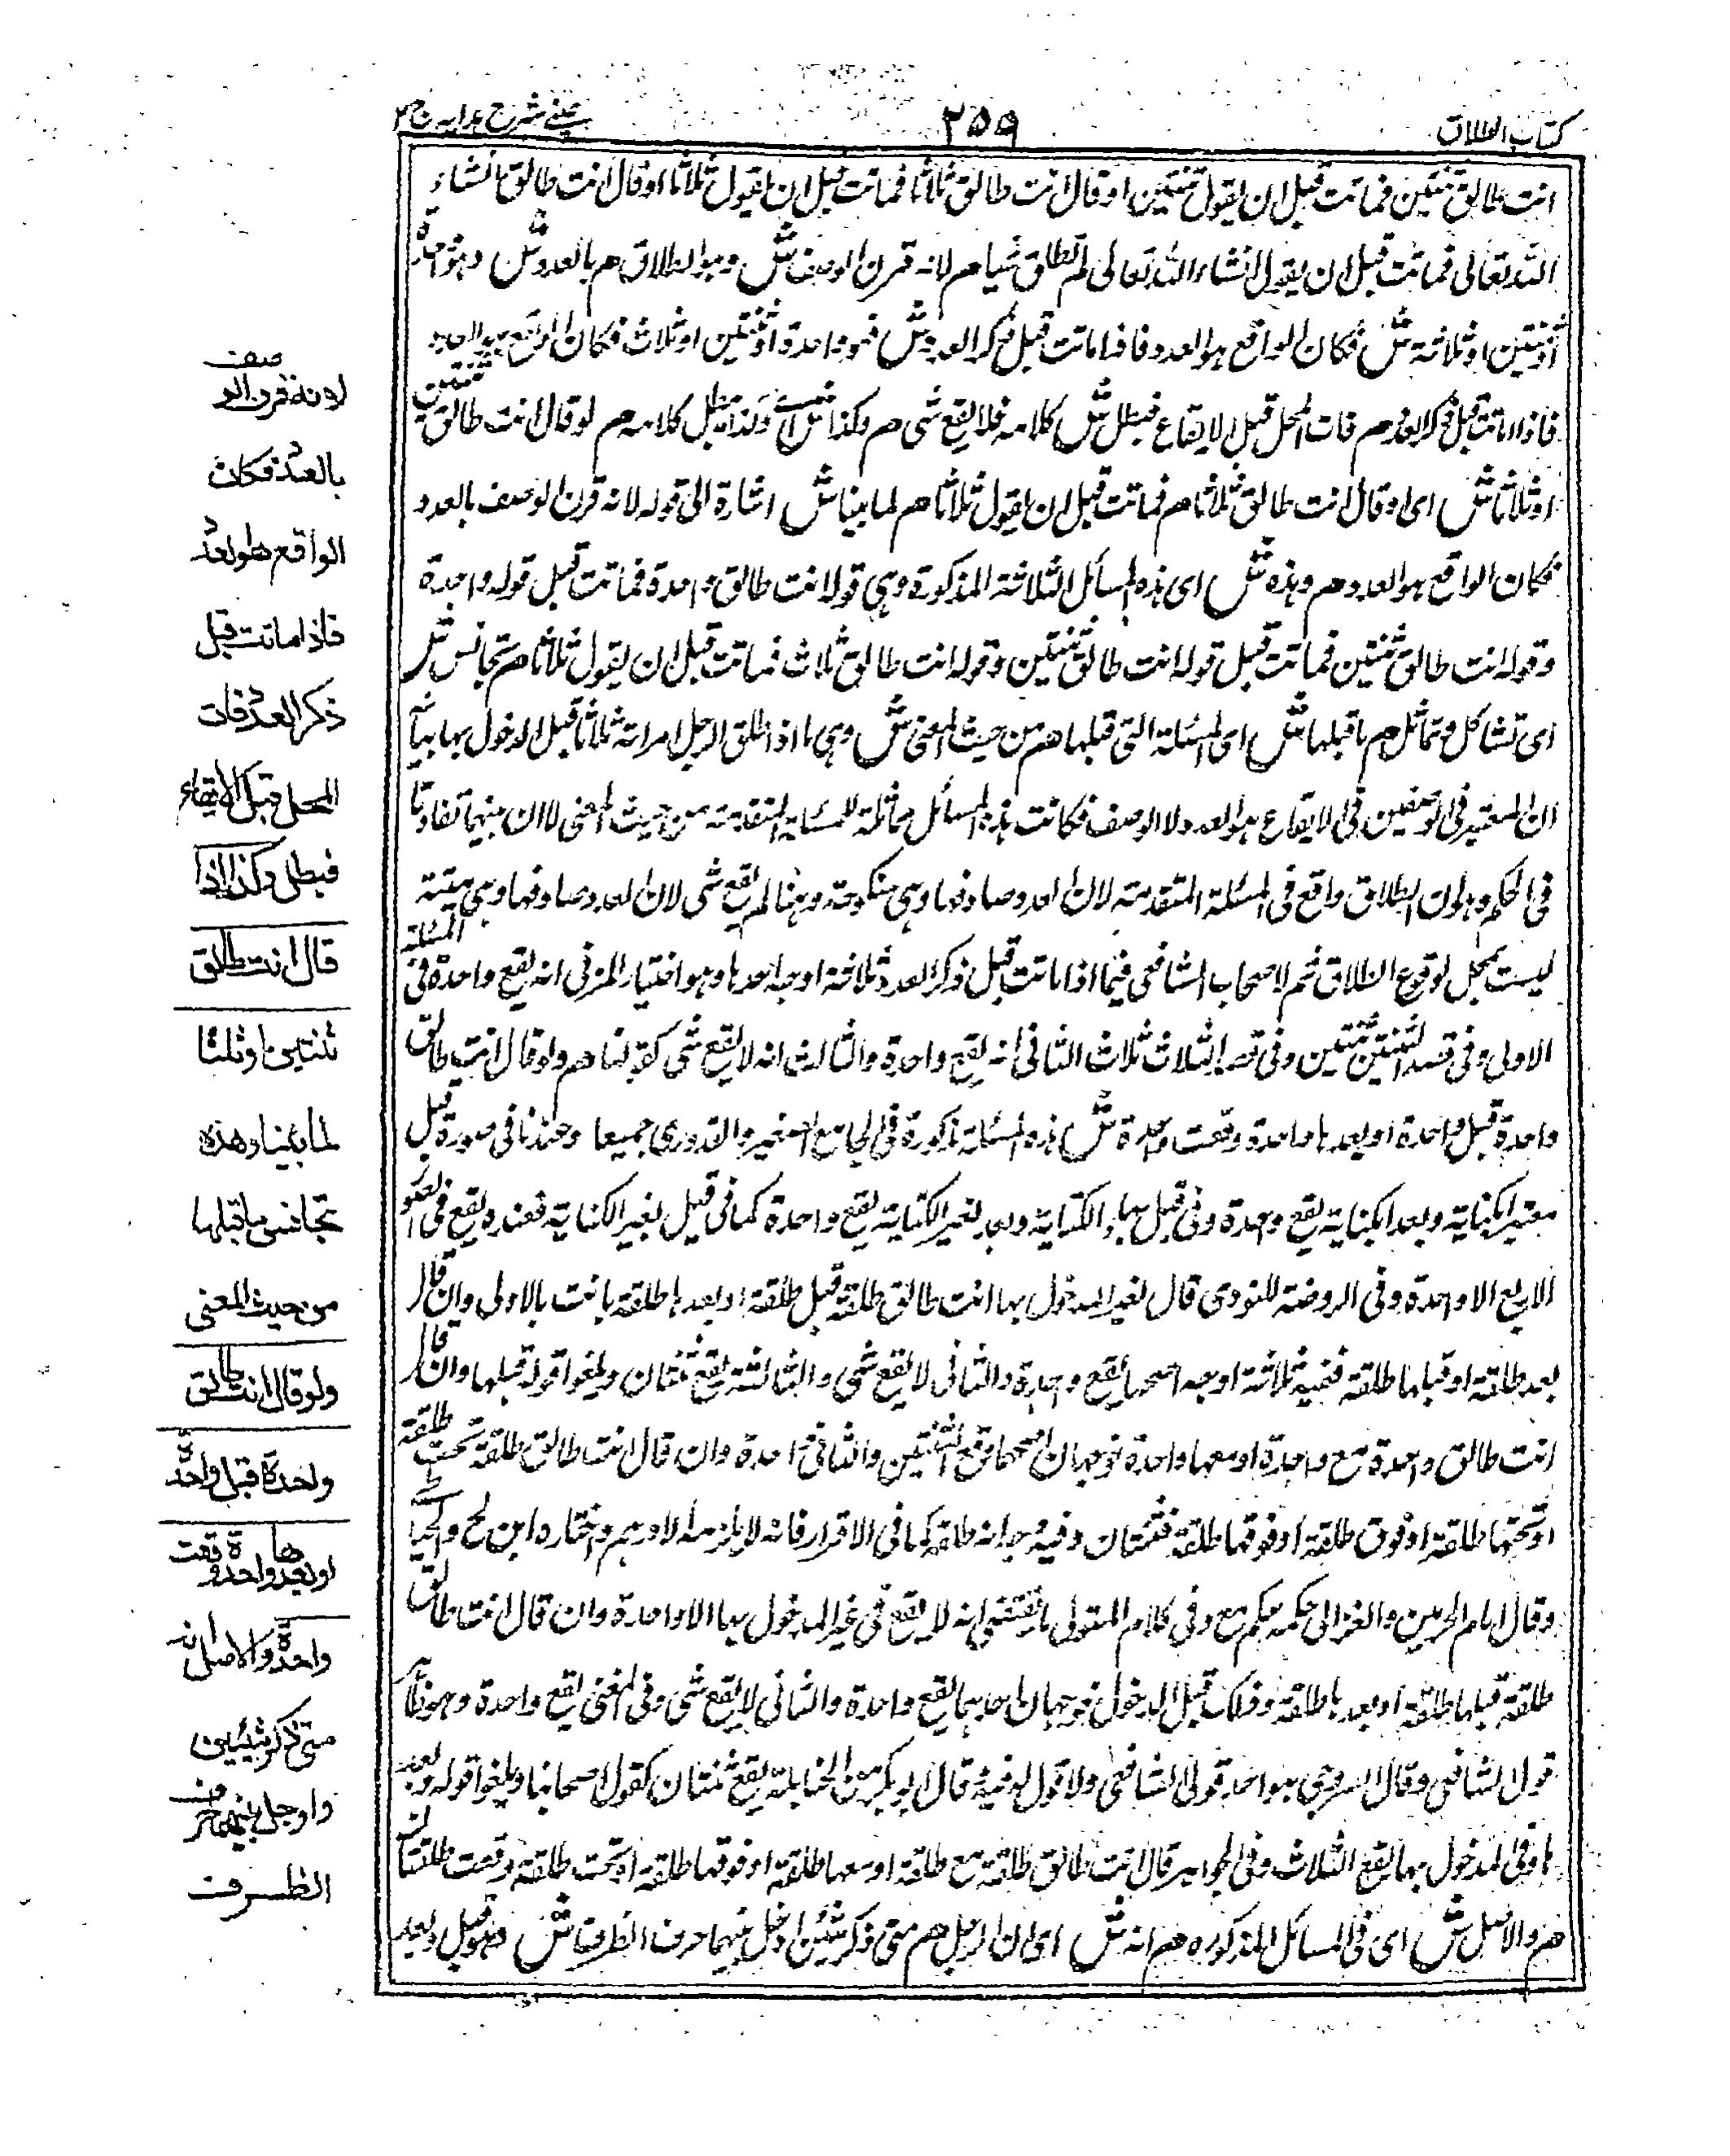 كتاب الطلاق
٢٥٩
عيني شرح هدايه ج ٢
انت طالق ثنتين فماتت قبل ان يقول ثنتين او قال انت طالق ثلاثا فماتت قبل ان يقول ثلاثا او قال انت طالق انشاء
الله تعالى فماتت قبل ان يقول انشاء الله تعالى لم تطلق شيا هم لانه قرن الوصف ش وهو الطلاق هم بالعدد ش وهو واحدة
او ثنتين او ثلاثة ش فكان الواقع هو العدد فاذا ماتت قبل ذكر العدد ش فهو واحدة او ثنتين او ثلاث فكان الواقع هو العدد
فاذا ماتت قبل ذكر العدد هم فات المحل قبل الايقاع فبطل ش كلامه فلا يقع شى هم وكذا ش اى وكذا يبطل كلامه هم لو قال انت طالق ثنتين
او ثلاثا ش اى او قال انت طالق ثلاثا هم فماتت قبل ان يقول ثلاثا هم لما بينا ش اشارة الى قوله لانه قرن الوصف بالعدد
فكان الواقع هو العدد هم وهذه ش اى هذه المسائل الثلاثة المذكورة وهي قوله انت طالق واحدة فماتت قبل قوله واحدة
وقوله انت طالق ثنتين فماتت قبل قوله انت طالق ثنتين وقوله انت طالق ثلاث فماتت قبل ان يقول ثلاثا هم تجانس ش
اى تشاكل وتماثل هم ما قبلها ش اى المسئلة التى قبلها هم من حيث المعنى ش وهي ما اذا طلق الرجل امراته ثلاثا قبل الدخول بها بيانه
ان المعتبر فى الوصفين فى الايقاع هو العدد لا الوصف فكانت هذه المسائل مماثلة للمسئلة المتقدمة من حيث المعنى لا ان بينهما تفاوتا
فى الحكم وهو ان الطلاق واقع فى المسئلة المتقدمة لان العدد صادفها وهي منكوحة وهنا لم يقع شى لان العدد صادفها وهي ميتة
ليست بمحل لوقوع الطلاق ثم لاصحاب الشافعى فيما اذا ماتت قبل ذكر العدد ثلاثة اوجه احدها وهو اختيار المزنى انه يقع واحدة فى المسئلة
الاولى وفى قصد الثنتين ثنتين وفى قصد الثلاث ثلاث الثانى انه يقع واحدة والثالث انه لا يقع شى كقولنا هم ولو قال انت طالق
واحدة قبل واحدة او بعدها واحدة وقعت واحدة ش هذه المسئلة مذكورة فى الجامع الصغير والقدورى جميعا وعندنا فى صورة قبل
بغير الكناية وبعد الكناية يقع واحدة وفى قبل بهاء الكناية وبعد بغير الكناية يقع واحدة كما فى قبل بغير الكناية فعنده يقع فى الصور
الاربع الا واحدة وفى الروضة للنووى قال لغير المدخول بها انت طالق طلقة قبل طلقة او بعدها طلقة بانت بالاولى وان قال
بعد طلقة او قبلها طلقة ففيه ثلاثة اوجه اصحها يقع واحدة والثانى لا يقع شى والثالثة يقع ثنتان ويلغوا قوله قبلها وان قال
انت طالق واحدة مع واحدة او معها واحدة فوجهان اصحهما يقع الثنتين والثانى واحدة وان قال انت طالق طلقة تحت طلقة
او تحتها طلقة او فوق طلقة او فوقها طلقة فثنتان وفيه وجه انه طلقة كما فى الاقرار فانه لا يلزمه الا درهم واختاره ابن كج والحناطى
وقال امام الحرمين والغزالى حكمه حكم مع وفى كلام المتولى ما يقتضى انه لا يقع فى غير المدخول بها الا واحدة وان قال انت طالق
طلقة قبلها طلقة او بعدها طلقة وذلك قبل الدخول فوجهان احدهما يقع واحدة والثانى لا يقع شى وفى المغنى يقع واحدة وهو ظاهر
قول الشافعى وقال السروجى هو احد قولى الشافعى ولا قول لوفيه قال ابو بكر من الحنابلة يقع ثنتان كقول اصحابنا ويلغوا قوله وبعد
ها وفى المدخول بها يقع الثلاث وفى الجواهر قال انت طالق طلقة مع طلقة او معها طلقة او فوقها طلقة او تحت طلقة وقعت طلقتان
هم والاصل ش اى فى المسائل المذكوره هم انه ش اى ان الرجل هم متى ذكر شيئين ادخل بينهما حرف الظرف ش وهو قبل وبعد
لانه قرن الوصف
بالعدد فكان
الواقع هو العدد
فاذا ماتت قبل
ذكر العدد فات
المحل قبل الايقاع
فبطل وكذا اذا
قال انت طالق
ثنتين او ثلثا
لما بينا وهذه
تجانس ما قبلها
من حيث المعنى
ولو قال انت طالق
واحدة قبل واحدة
او بعدها واحدة وقعت
واحدة والاصل انه
متى ذكر شيئين
وادخل بينهما حرف
الظرف